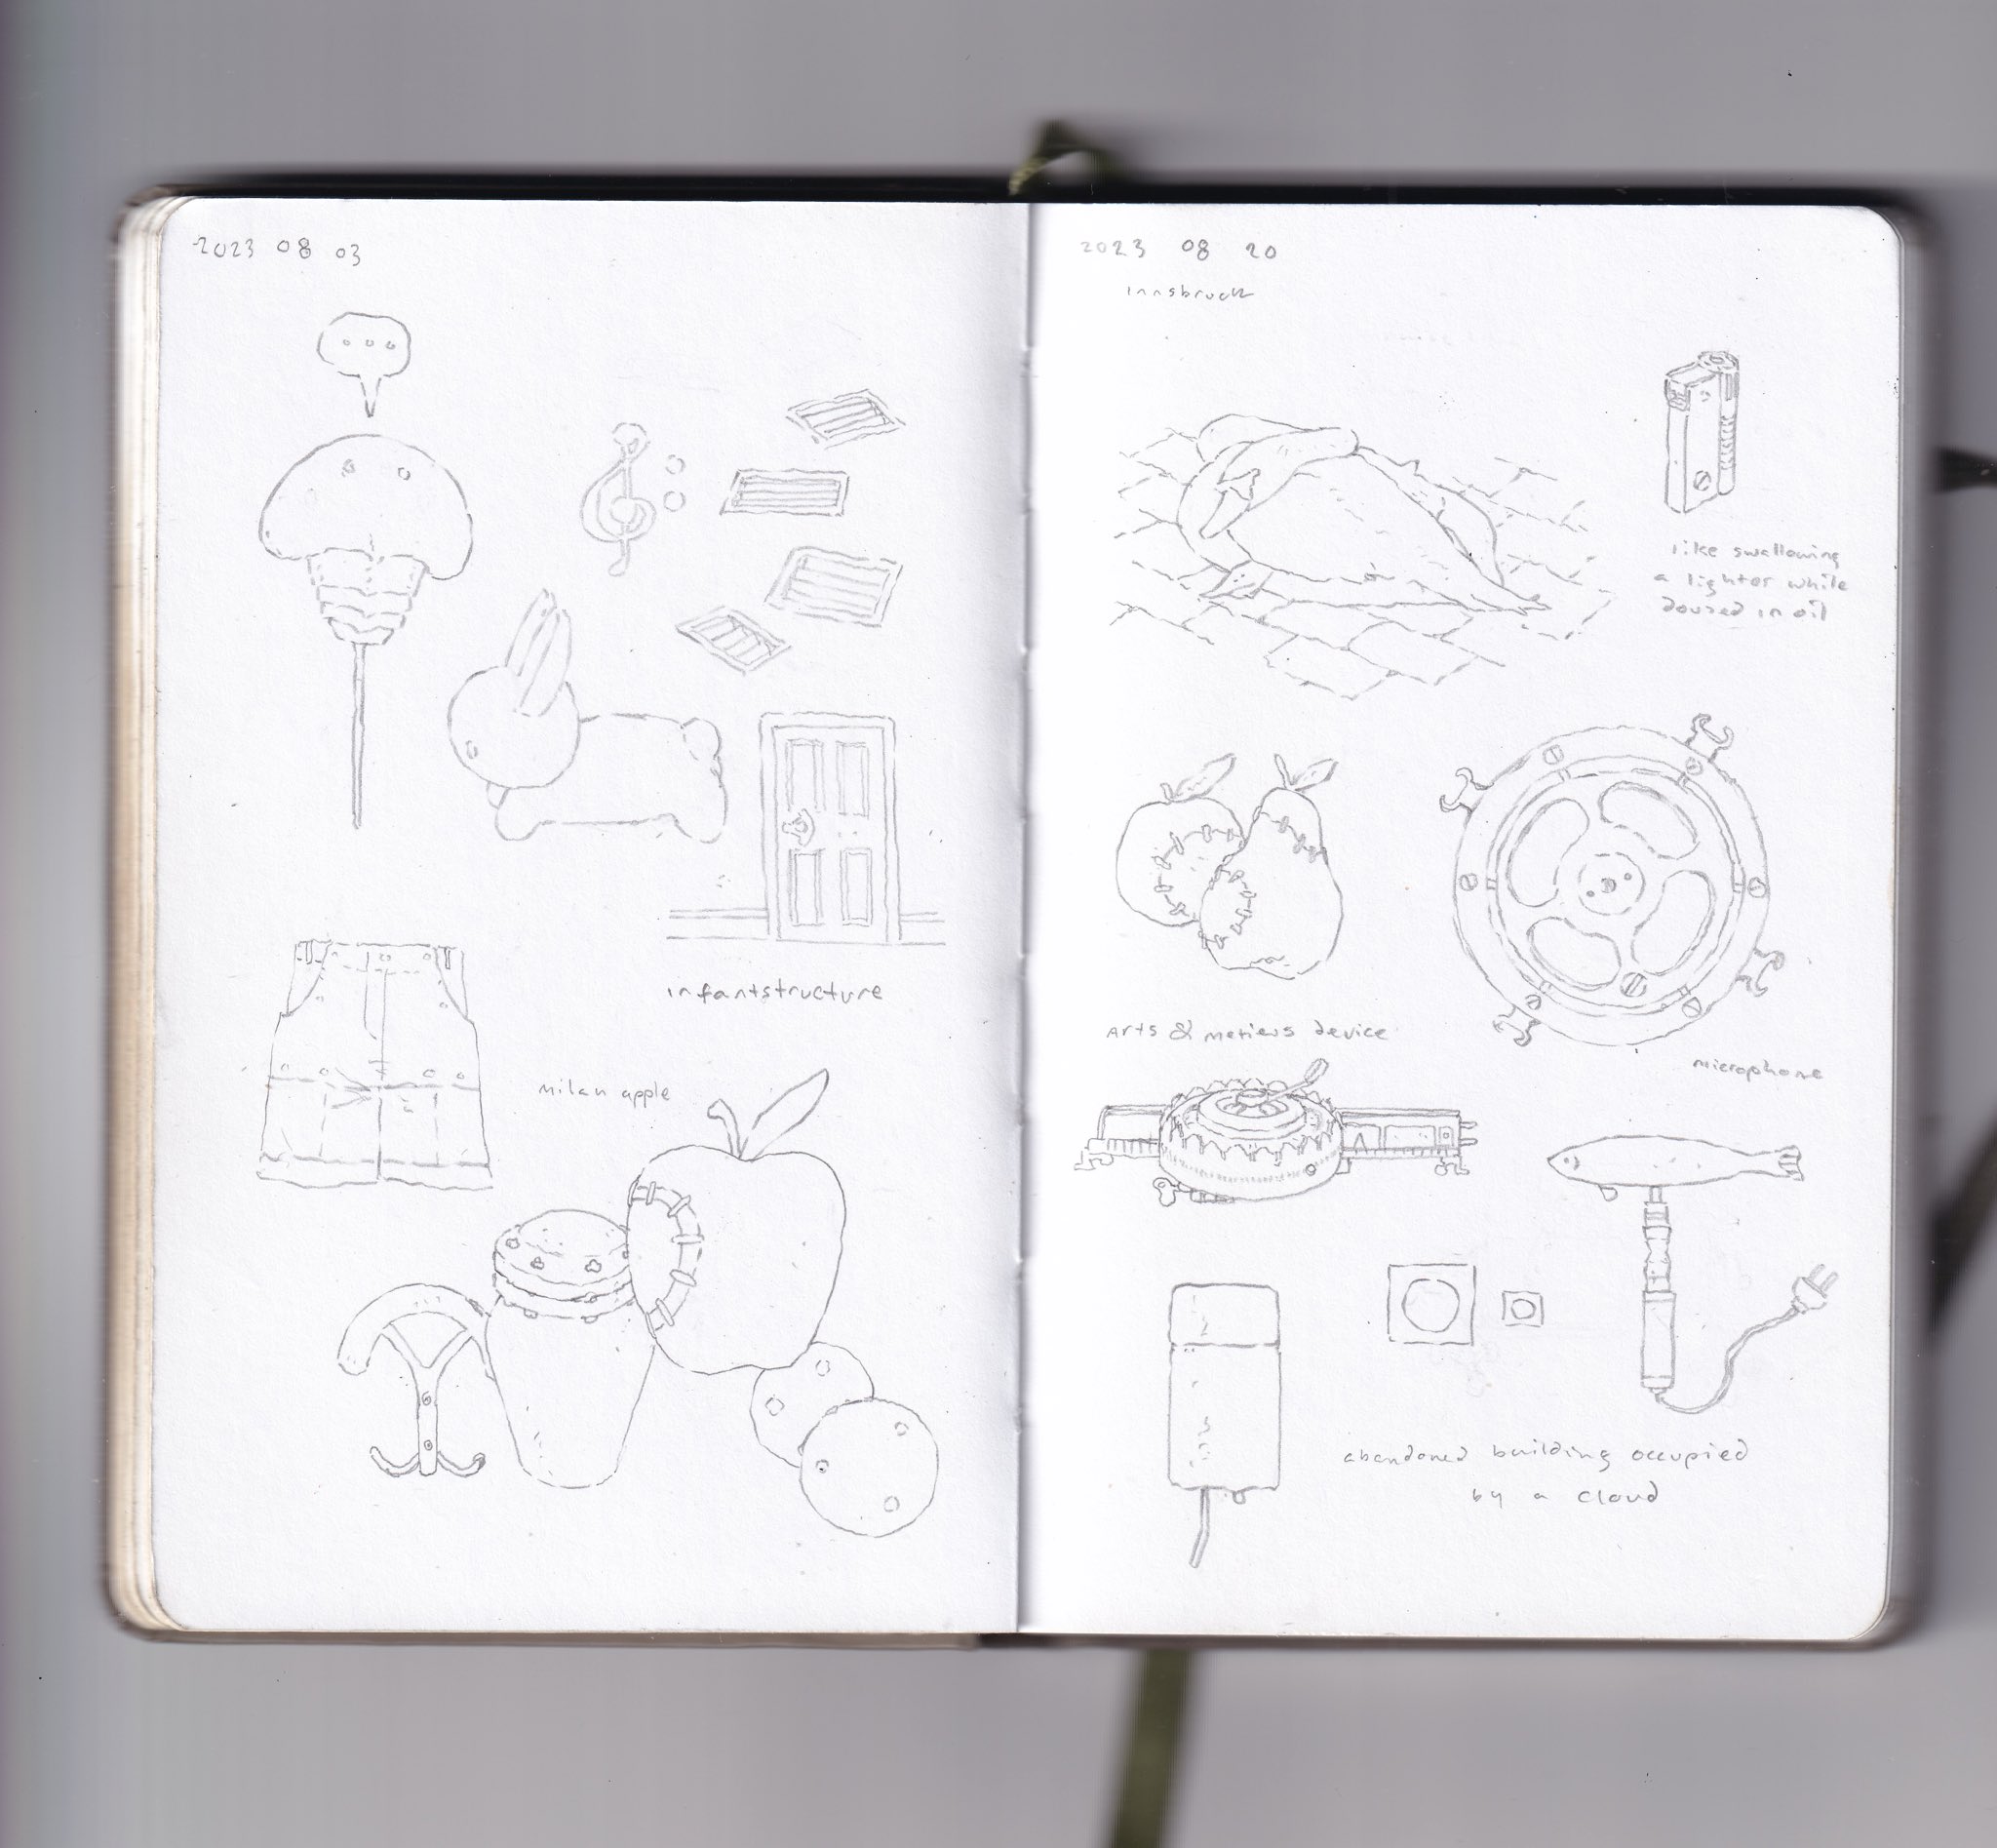 2023 08 03
infantstructure
milan apple
2023 08 20
innsbruck
like swallowing
a lighter while
doused in oil
Arts & Metiers device
microphone
abandoned building occupied
by a cloud